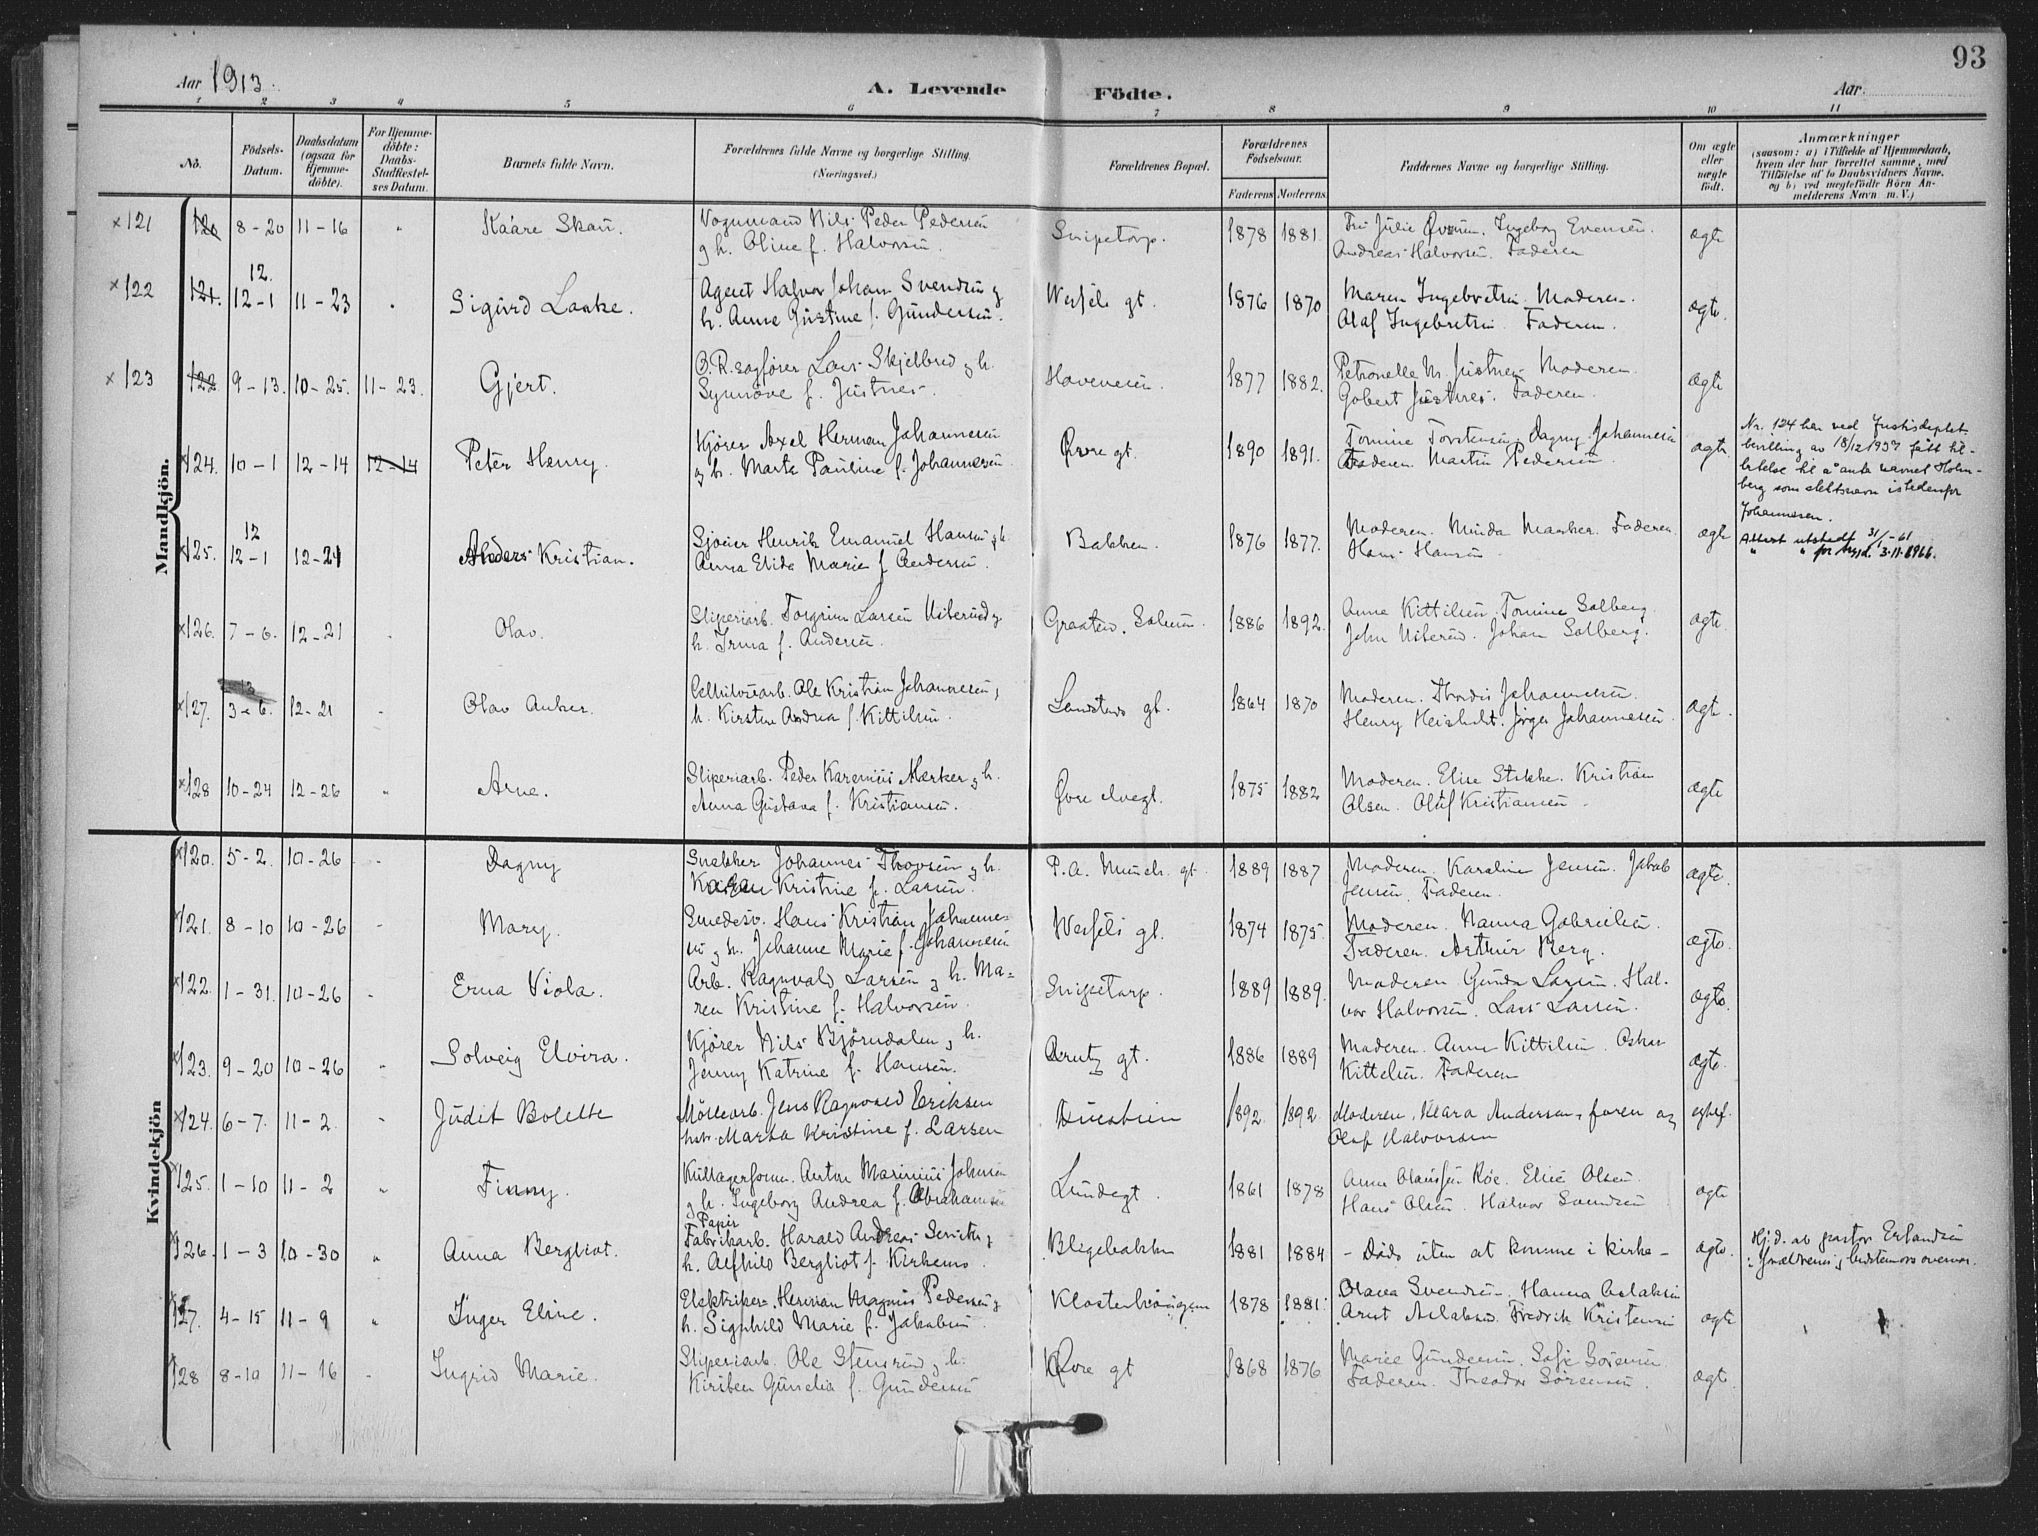 93
Aar 1913.
A. Levende Födte.
Aar
1 2 3 4 5 6 7 8 9 10 11
No.
Födsels-Datum.
Daabsdatum (ogsaa for Hjemme-döbte).
For Hjemme-döbte: Daabs-Stadfæstel-ses Datum.
Barnets fulde Navn.
Forældrenes fulde Navne og borgerlige Stilling. (Næringsvei.)
Forældrenes Bopæl.
Forældrenes Födselsaar. Faderens Moderens
Faddernes Navne og borgerlige Stilling.
Om ægte eller uægte födt.
Anmærkninger
(saasom: a) i Tilfælde af Hjemmedaab, hvem der har forrettet samme, med Tilföielse af to Daabsvidners Navne, og b) ved uægtefödte Börn An-melderens Navn m. V.)
Mandkjön.
×121 120 8-20 11-16 " Kåare Skau. Vognmand Nils Peder Pedersen
g h. Oline f. Halvorsen. Snipetorp. 1878 1881 Fru Julie Øvrum. Ingeborg Evensen.
Andreas Halvorsen. Faderen ægte
×122 121. 12. 12-1 11-23 " Sigurd Laake. Agent Halvor Johan Svendsen g
h. Anne Justine f. Gundersen. Wessels gt. 1876 1870 Maren Ingebretsen. Moderen.
Olaf Ingebretsen. Faderen. ægte.
×123 122 9-13. 10-25. 11-23. Gjert. O.R.sagfører Lars Skjelbred g h.
Synnøve f. Justnes. Haveveien. 1877 1882. Petronelle M. Justnes. Moderen.
Gobert Justnes. Faderen. ægte
×124. 10-1 12-14 12-14 Peter Henry. Kjører Axel Herman Johannesen
g h. Marta Pauline f. Johannesen. Øvre gt. 1890 1891. Tomine Torstensen, Dagny Johannesen
Faderen. Martin Pedersen. ægte.
Nr. 124 har ved Justisdeptets
bevilling av 18/12 1937 fått til-
latelse til å anta navnet Holm-
berg som slektsnavn istedenfor
Johannesen.
×125. 12 12-1 12-21 Anders Kristian. Sjøm. Henrik Emanuel Hansen g h.
Anna Elida Marie f. Andersen. Bakken. 1876 1877. Moderen. Minda Marker. Faderen
Hans Hansen ægte
Attest utstedt 31/1-61
" " for 3-11-1966.
×126. 7-6. 12-21 " Olav. Sliperiarb. Torgrim Larsen g
h. Irma f. Andersen. Graaten. Solum. 1886 1892. Anne Kittilsen. Tomine Solberg.
John Johan Solberg. ægte.
×127. 3-6. 12-21 " Olav Anker. Cellulosearb. Ole Kristian Johannesen g
h. Kirstine Andrea f. Kittilsen. Landstads gt. 1864 1870 Moderen. Thordis Johannesen.
Henry Heisholt. Jørgen Johannesen. ægte.
×128 10-24 12-26 " Arne. Sliperiarb. Peder Karenius Mærker g h.
Anna Gustava f. Kristiansen. Øvre elvegt. 1875 1882 Moderen. Elise Stokke. Kristian
Olsen. Oluf Kristiansen. ægte
Kvindekjön
×120. 5-2. 10-26 " Dagny Snekker Johannes Thovsen g h.
Karen Kristine f. Larsen. P.A. Munchs gt. 1889 1887 Moderen. Karoline Jensen. Jakob
Jensen. Faderen. ægte.
×121. 8-10 10-26 " Mary. Smedesv. Hans Kristian Johanne-
sen g h. Johanne Marie f. Johannesen Wessels gt. 1874 1875. Moderen. Nanna Gabrielsen.
Faderen. Arthur Berg. ægte.
×122. 1-31. 10-26 " Erna Viola. Arb. Ragnvald Larsen g h. Ma-
ren Kristine f. Halvorsen. Snipetorp. 1889 1889. Moderen. Gunda Larsen. Hal-
vor Halvorsen. Lars Larsen. ægte.
×123. 9-20 10-26 " Solveig Elvira. Kjører Nils Bjørndalen g h.
Jenny Katrine f. Hansen. Arntz gt. 1886 1889 Moderen. Anne Kittilsen. Oskar
Kittilsen. Faderen ægte.
×124. 6-7. 11-2. " Judit Bolette Møllearb. Jens Ragnvald Eriksen
hstr. Marta Kristine f. Larsen 1892. 1892 Moderen, Klara Andersen, faren og
Olaf Halvorsen egtef.
×125. 1-10 11-2 " Finny. Kullagerform. Anton Marinius Johnsen
g h. Ingeborg Andrea f. Abrahamsen Lundegt. 1861 1878 Anne Olausen Røe. Elise Olsen.
Hans Olsen. Halvor Svendsen ægte
×126. 1-3 10-30 " Anna Bergliot. Papir
Fabrikarb. Harald Andreas g
h. Alfhild Bergliot f. Kirkemo. Blegebakken 1881 1884 - Døds uten at komme i kirke - ægte.
Hj.d. av pastor Erlandsen
: Forældrene g bestemors overvær.
×127. 4-15 11-9 " Inger Eline. Elektriker Herman Magnus Pedersen g
h. Signhild Marie f. Jakobsen. Klosterhaugen 1878 1881. Olava Svendsen. Hanna Aslaksen
Arnt Aslaksen. Fredrik Kristensen ægte
×128 8-10 11-16 " Ingrid Marie. Sliperiarb. Ole Stensrud g h.
Kirsten Gunelia f. Gundersen Øvre gt 1868 1876 Marie Gundersen. Sofie Sørensen
Faderen. Theodor Sørensen. ægte.